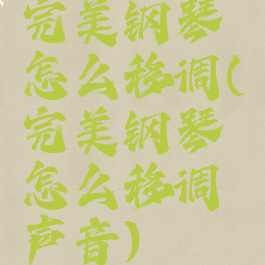 完美钢琴
怎么移调(
完美钢琴
怎么移调
声音)